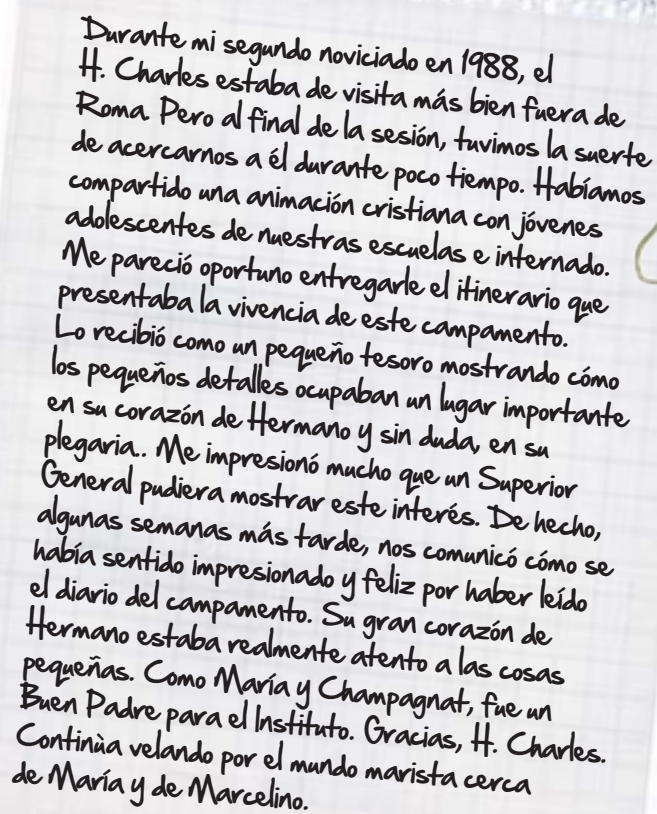 Durante mi segundo noviciado en 1988, el
H. Charles estaba de visita más bien fuera de
Roma. Pero al final de la sesión, tuvimos la suerte
de acercarnos a él durante poco tiempo. Habíamos
compartido una animación cristiana con jóvenes
adolescentes de nuestras escuelas e internado.
Me pareció oportuno entregarle el itinerario que
presentaba la vivencia de este campamento.
Lo recibió como un pequeño tesoro mostrando cómo
los pequeños detalles ocupaban un lugar importante
en su corazón de Hermano y sin duda, en su
plegaria.. Me impresionó mucho que un Superior
General pudiera mostrar este interés. De hecho,
algunas semanas más tarde, nos comunicó cómo se
había sentido impresionado y feliz por haber leído
el diario del campamento. Su gran corazón de
Hermano estaba realmente atento a las cosas
pequeñas. Como María y Champagnat, fue un
Buen Padre para el Instituto. Gracias, H. Charles.
Continùa velando por el mundo marista cerca
de María y de Marcelino.